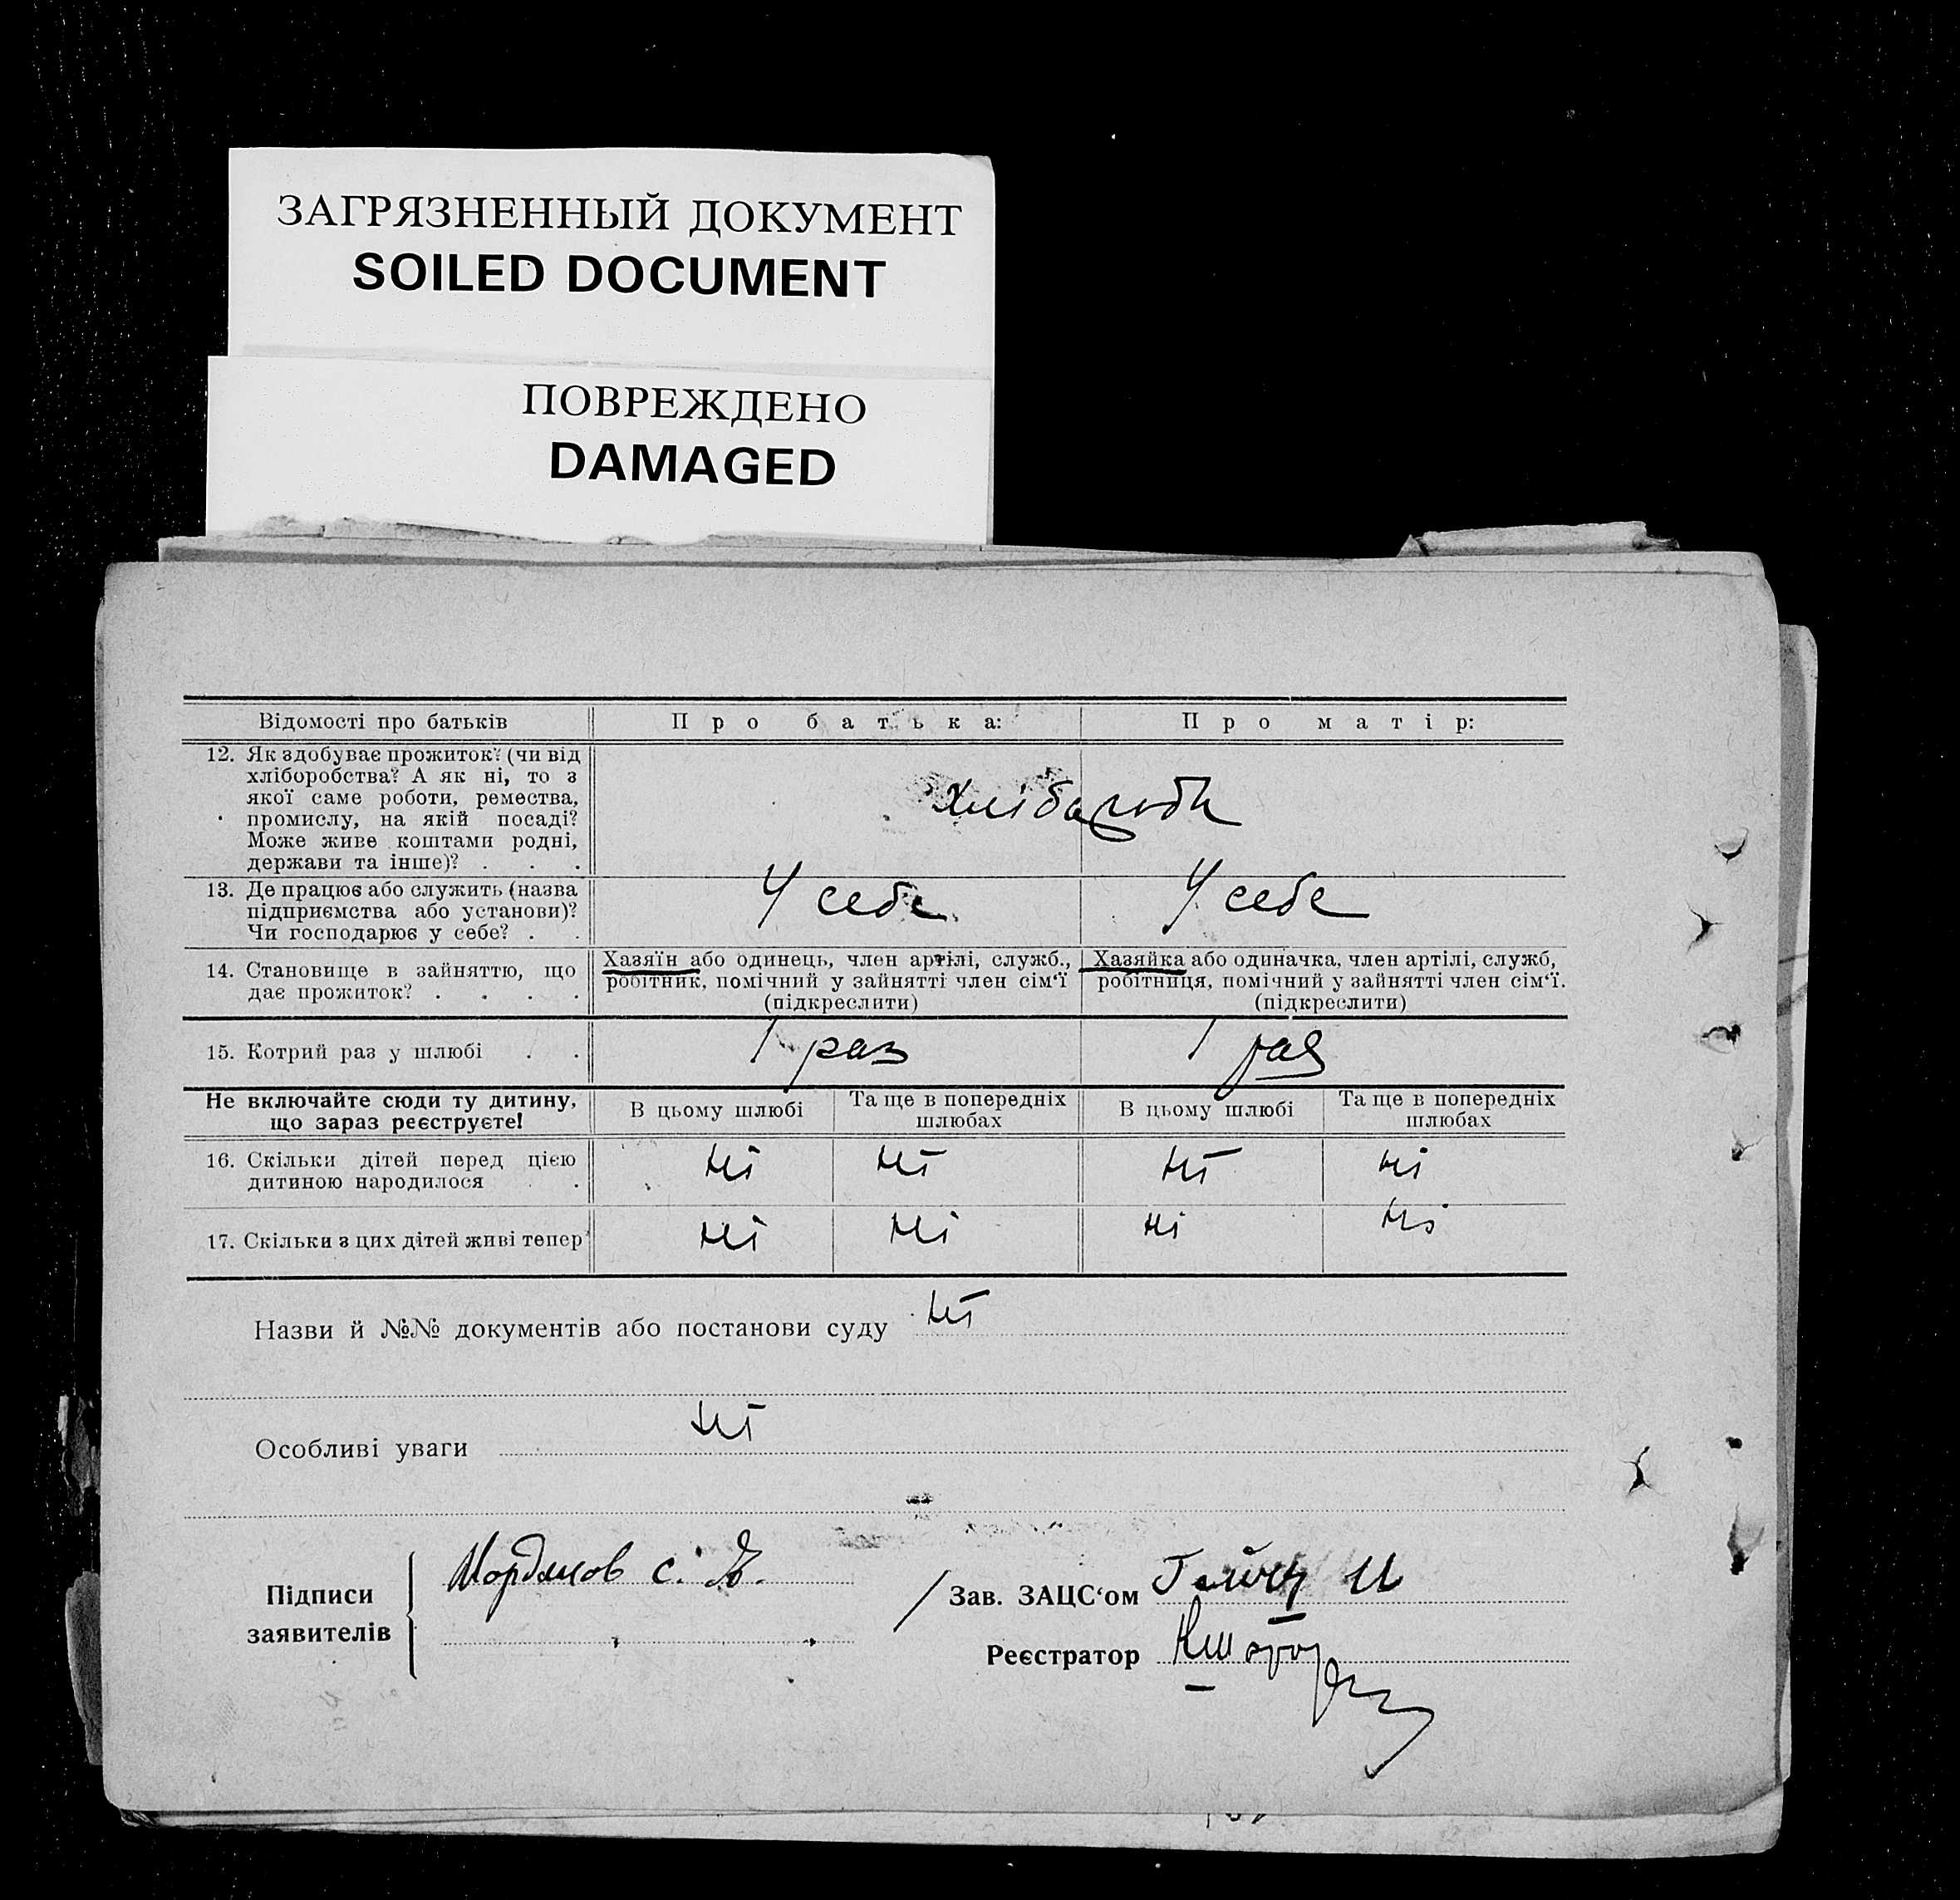 ЗАГРЯЗНЕННЫЙ ДОКУМЕНТ
SOILED DOCUMENT
ПОВРЕЖДЕНО
DAMAGED
Відомості про батьків Про батька: Про матір:
12. Як здобуває прожиток? (чи від
хліборобства? А як ні, то з
якої саме роботи, ремества,
промислу, на якій посаді?
Може живе коштами родні,
держави та інше)? . . .
13. Де працює або служить (назва
підприємства або установи)?
Чи господарює у себе? . .
У себе У себе
14. Становище в зайняттю, що
дає прожиток? . . . .
Хазяїн або одинець, член артілі, служб.,
робітник, помічний у зайнятті член сім'ї
(підкреслити)
Хазяйка або одиначка, член артілі, служб,
робітниця, помічний у зайнятті член сім'ї.
(підкреслити)
15. Котрий раз у шлюбі . . 1 раз 1 раз
Не включайте сюди ту дитину,
що зараз реєструєте!
В цьому шлюбі Та ще в попередніх
шлюбах
В цьому шлюбі Та ще в попередніх
шлюбах
16. Скільки дітей перед цією
дитиною народилося .
ні ні ні ні
17. Скільки з цих дітей живі тепер ні ні ні ні
Назви й №№ документів або постанови суду ні
Особливі уваги ні
Підписи
заявителів
С.
Зав. ЗАЦС'ом
Реєстратор